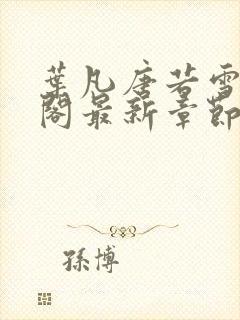 葉凡唐若雪
閣最新章節
孫博